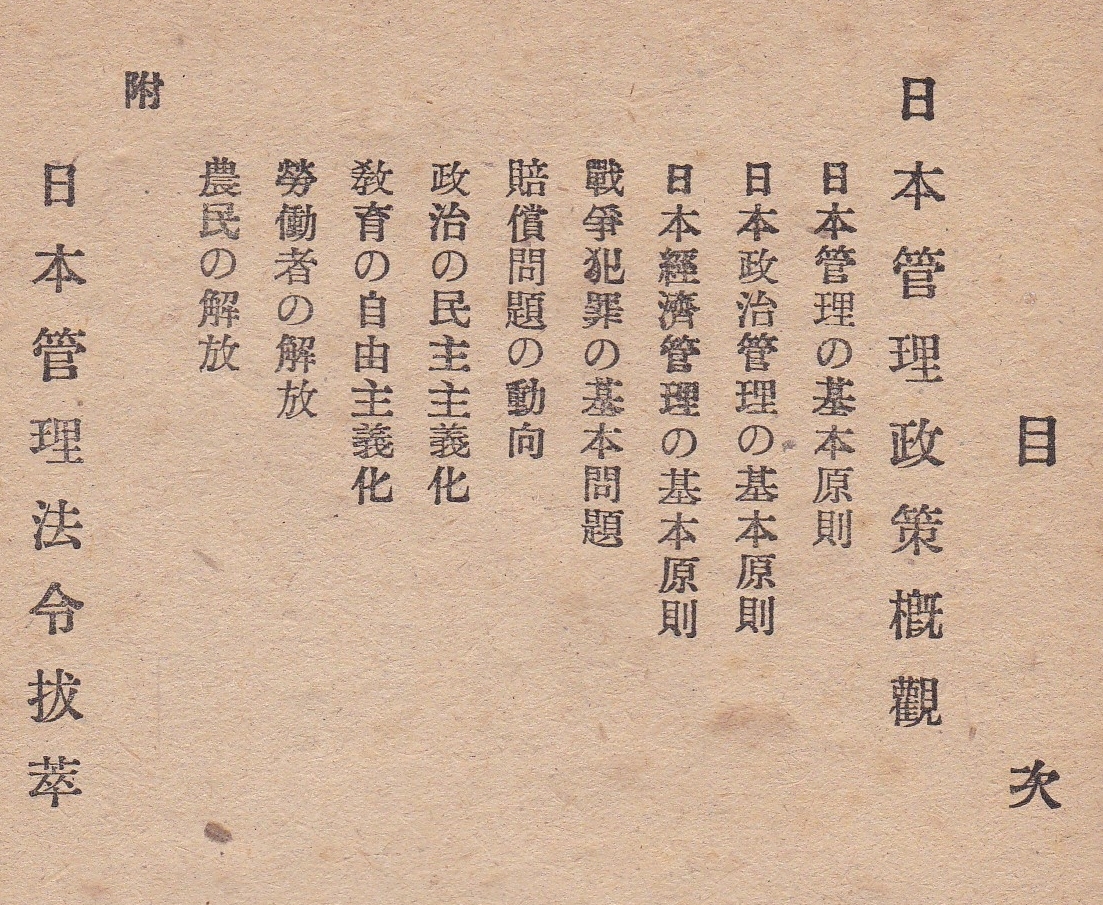 目次
日本管理政策概觀
日本管理の基本原則
日本政治管理の基本原則
日本經濟管理の基本原則
戰爭犯罪の基本問題
賠償問題の動向
政治の民主主義化
敎育の自由主義化
勞働者の解放
農民の解放
附
日本管理法令拔萃